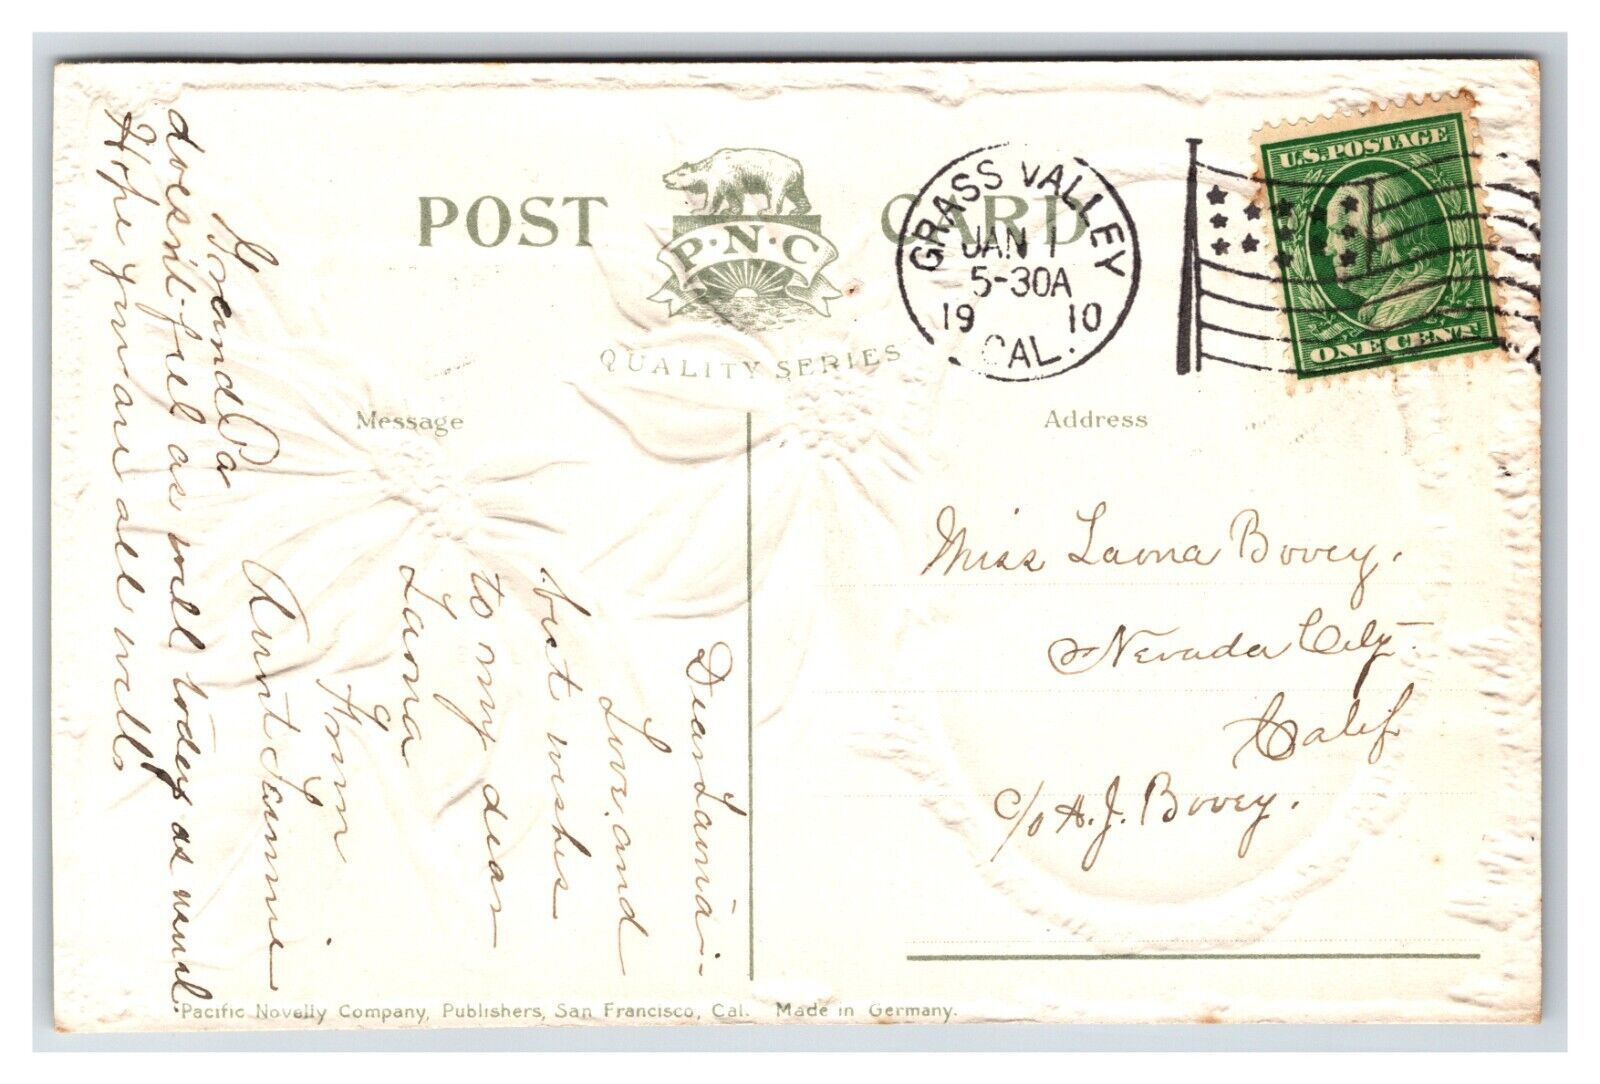 POST CARD
P·N·C
QUALITY SERIES
GRASS VALLEY
JAN 1
5-30A
1910
CAL.
U.S. POSTAGE
ONE CENT
Message
Address
Miss Laona Bovey.
Nevada City
Calif
c/o A. J. Bovey.
Dear Laona:-
Love, and
best wishes
to my dear
Laona
from
Aunt Fannie
GrandPa
doesn't feel as well today as usual.
Hope you are all well.
Pacific Novelty Company, Publishers, San Francisco, Cal. Made in Germany.